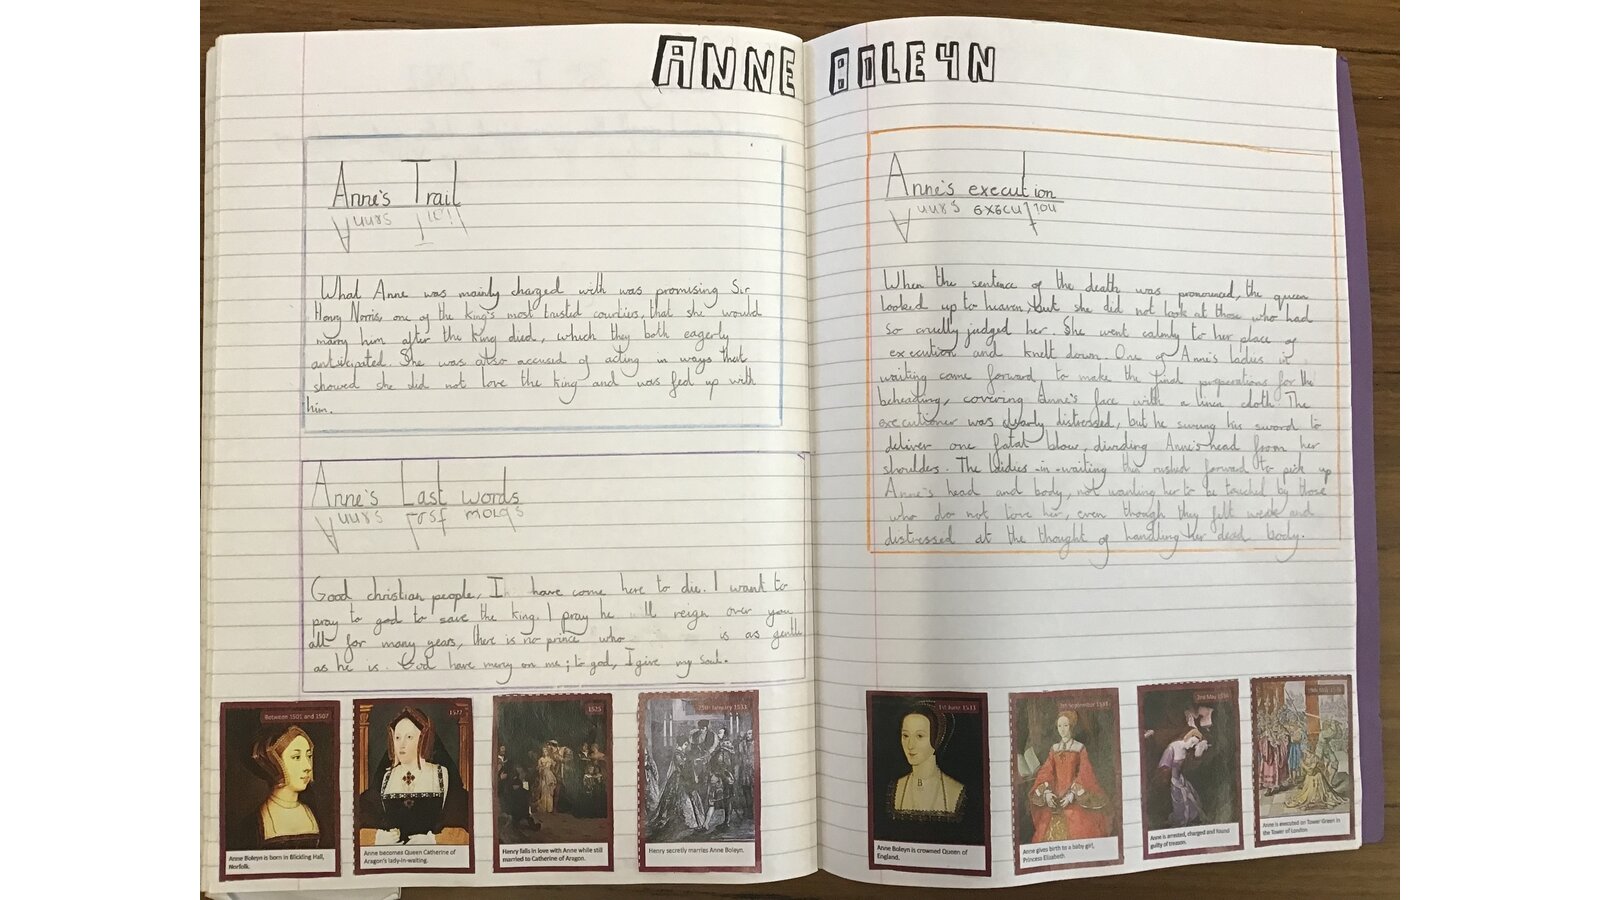 ANNE BOLEYN
Anne's Trail
What Anne was mainly charged with was promising Sir
Henry Norris, one of the king's most trusted courtiers, that she would
marry him after the king died, which they both eagerly
anticipated. She was also accused of acting in ways that
showed she did not love the king and was fed up with
him.
Anne's Last words
Good christian people, I have come here to die. I want to
pray to god to save the king. I pray he ll reign over you
all for many years, there is no prince who is as gentle
as he is. God have mercy on me; to god, I give my soul.
Between 1501 and 1507
Anne Boleyn is born in Blickling Hall,
Norfolk.
1522
Anne becomes Queen Catherine of
Aragon's lady-in-waiting.
1525
Henry falls in love with Anne while still
married to Catherine of Aragon.
25th January 1533
Henry secretly marries Anne Boleyn.
Anne's execution
When the sentence of the death was pronounced, the queen
looked up to heaven, but she did not look at those who had
so cruelly judged her. She went calmly to her place of
execution and knelt down. One of Anne's ladies in
waiting came forward to make the final preperations for the
beheading, covering Anne's face with a linen cloth. The
executioner was clearly distressed, but he swung his sword to
deliver one fatal blow, dividing Anne's head from her
shoulders. The ladies-in-waiting then rushed forward to pick up
Anne's head and body, not wanting her to be touched by those
who do not love her, even though they felt weak and
distressed at the thought of handling her dead body.
1st June 1533
B
Anne Boleyn is crowned Queen of
England.
7th September 1533
Anne gives birth to a baby girl,
Princess Elizabeth.
2nd May 1536
Anne is arrested, charged and found
guilty of treason.
19th May 1536
Anne is executed on Tower Green in
the Tower of London